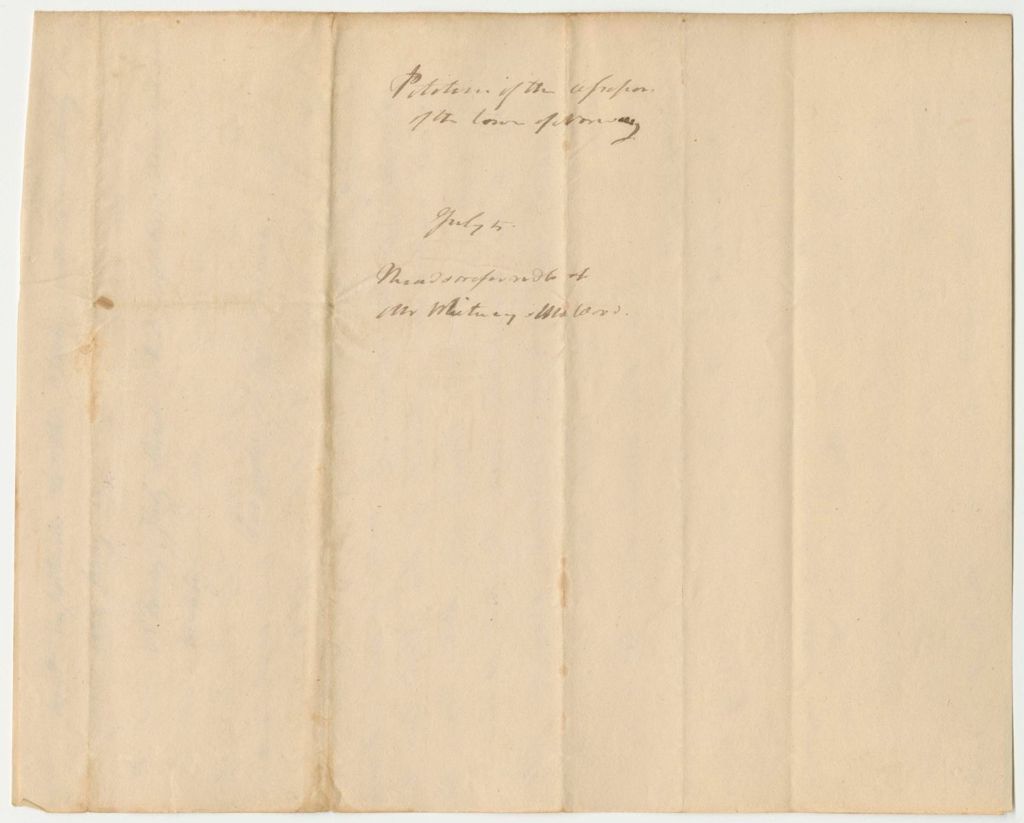 Petition of the assessors
of the town of Norway
July 5.
Read & referred to
Mr Whitney &